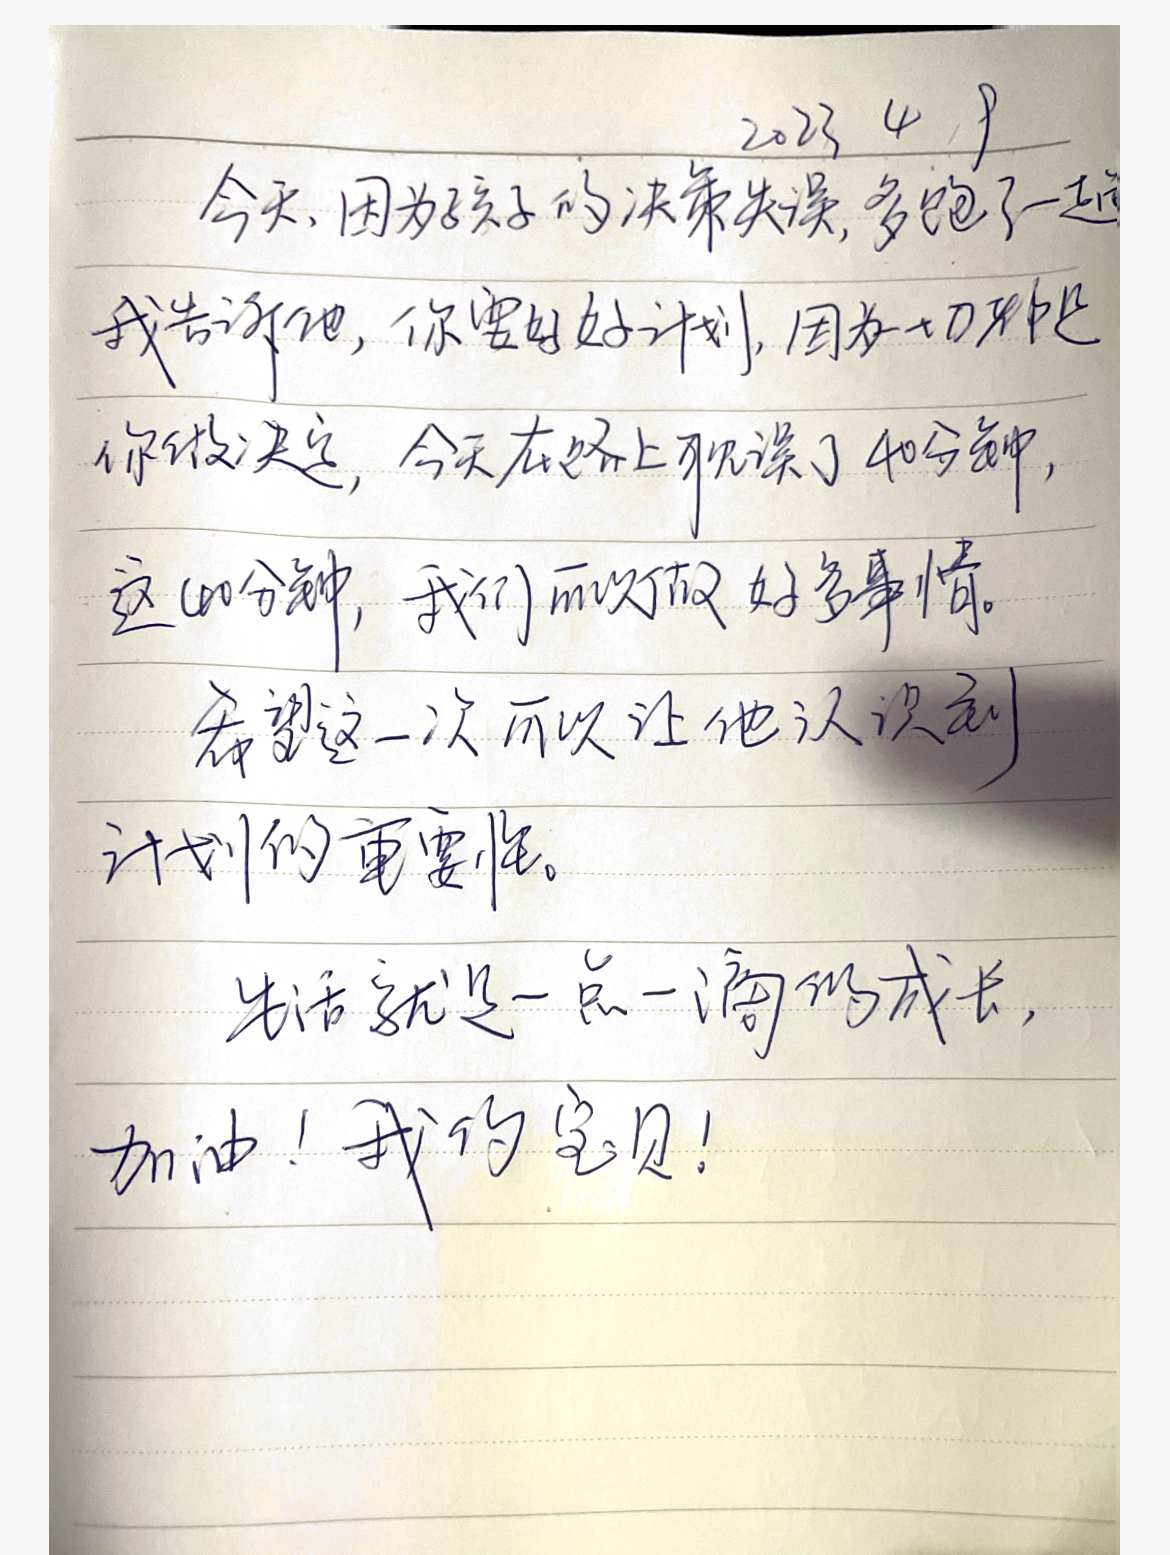 2023 4 9
今天、因为孩子的决策失误,多跑了一趟
我告诉他,你要好好计划,因为一切都是
你做决定,今天在路上耽误了40分钟,
这40分钟,我们可以做好多事情。
希望这一次可以让他认识到
计划的重要性。
生活就是一点一滴的成长,
加油!我的宝贝!